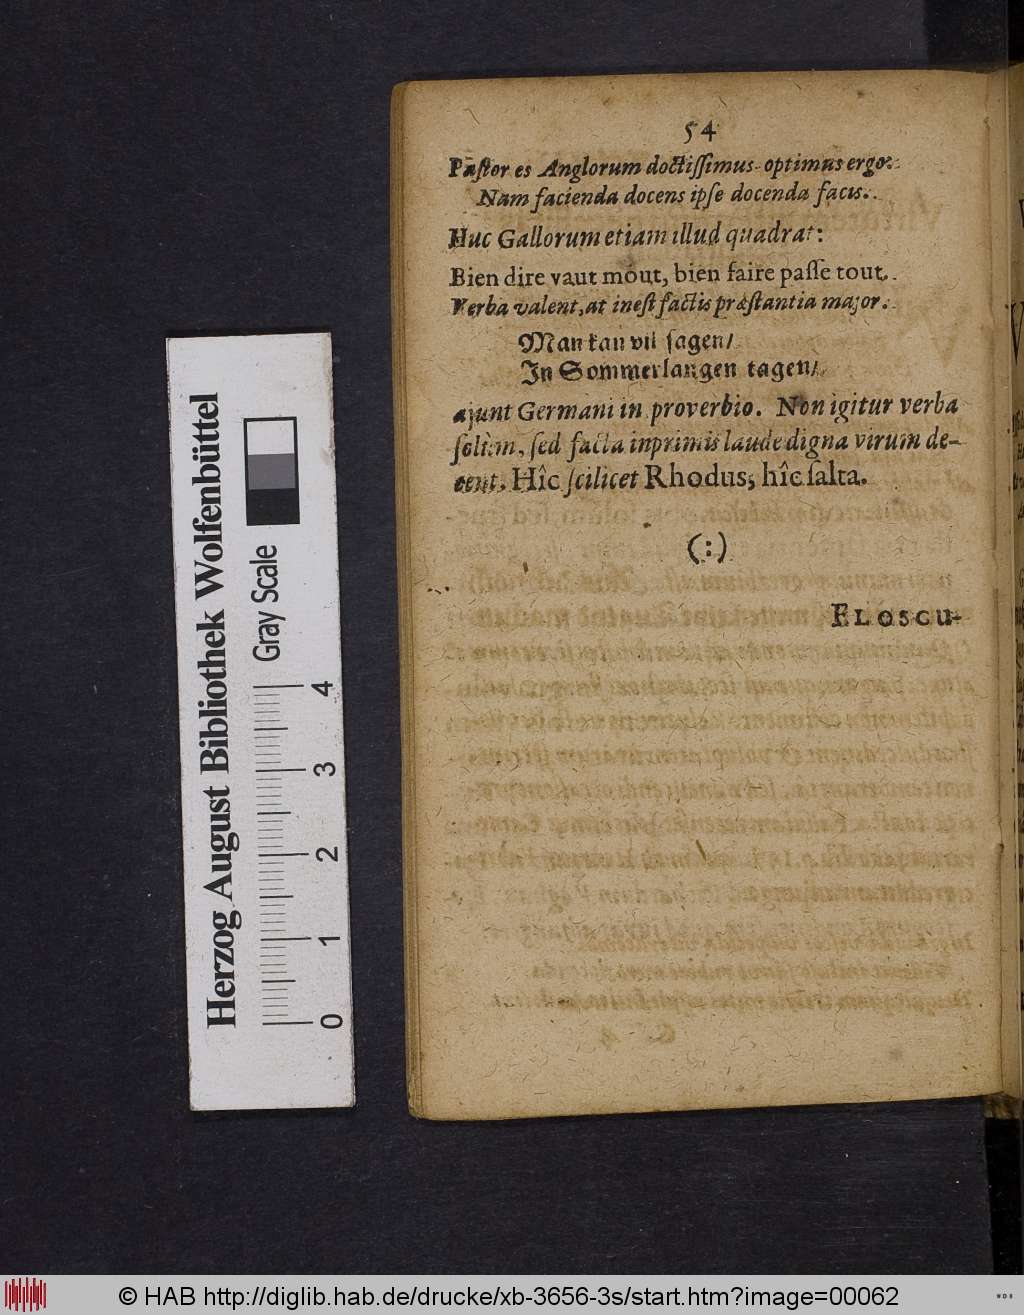 54
Pastor es Anglorum doctissimus optimus ergo:
Nam facienda docens ipse docenda facis.
Huc Gallorum etiam illud quadrat:
Bien dire vaut mout, bien faire passe tout.
Verba valent, at inest factis præstantia major.
Man kan vil sagen/
In Sommerlangen tagen/
ajunt Germani in proverbio. Non igitur verba
solùm, sed facta inprimis laude digna virum de-
cent. Hîc scilicet Rhodus, hîc salta.
(:)
FLOSCU-
Herzog August Bibliothek Wolfenbüttel
Gray Scale
0 1 2 3 4
© HAB http://diglib.hab.de/drucke/xb-3656-3s/start.htm?image=00062